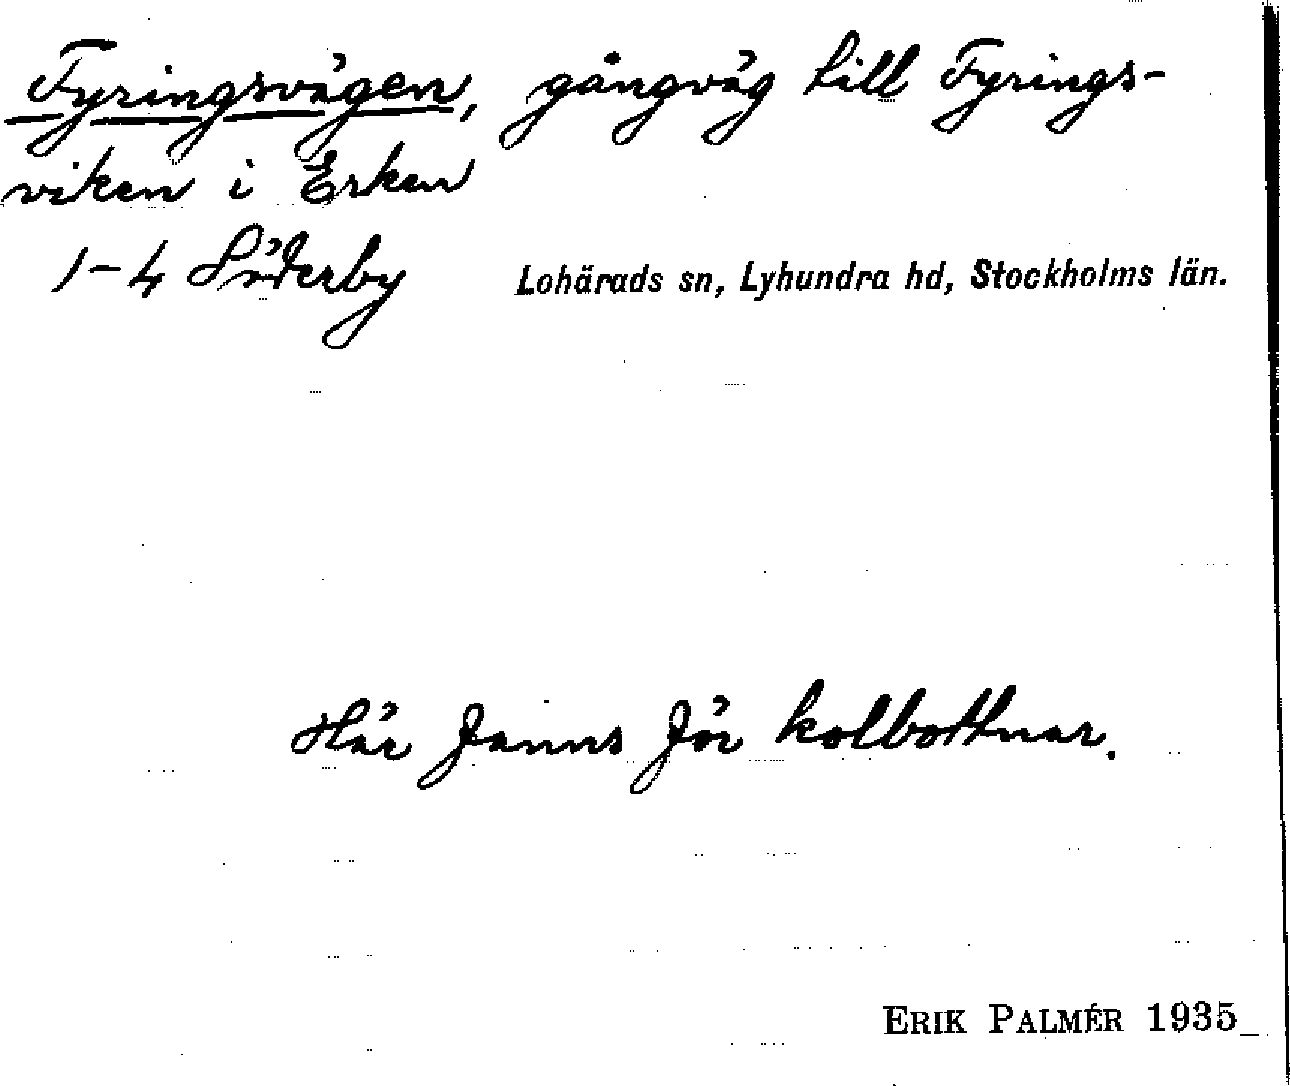 Fyringsvägen, gångväg till Fyrings-
viken i Erken
1-4 Söderby Lohärads sn, Lyhundra hd, Stockholms län.
Här fanns för kolbottnar.
ERIK PALMÉR 1935_